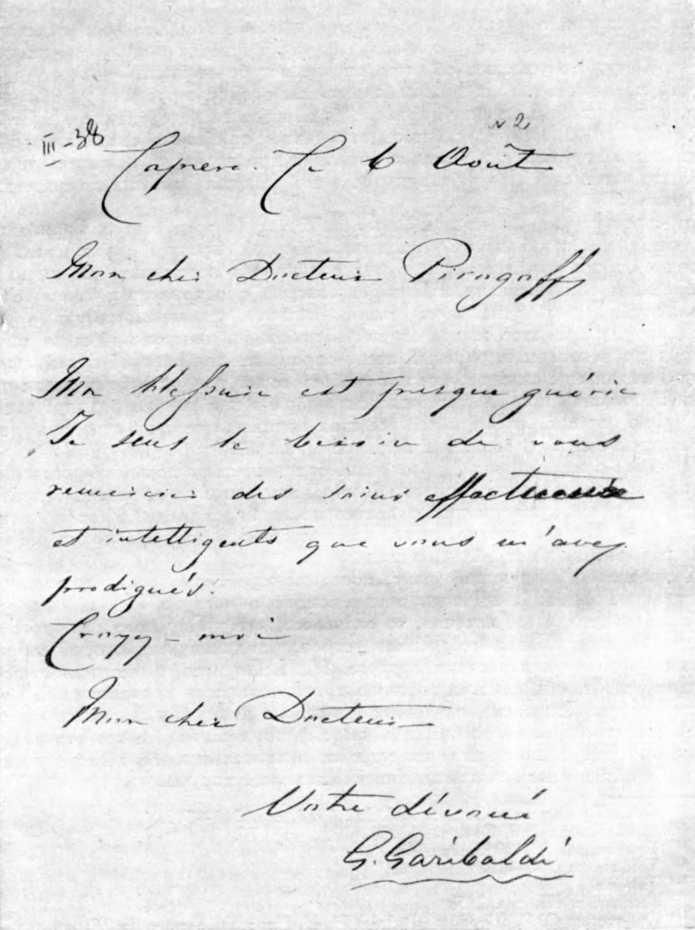 III-38
N 2
Caprera. Le 6 Août
Mon cher Docteur Pirogoff
Ma blessure est presque guérie
Je sens le besoin de vous
remercier des soins affectueux
et intelligents que vous m'avez
prodigués.
Croyez-moi
Mon cher Docteur
Votre dévoué
G. Garibaldi